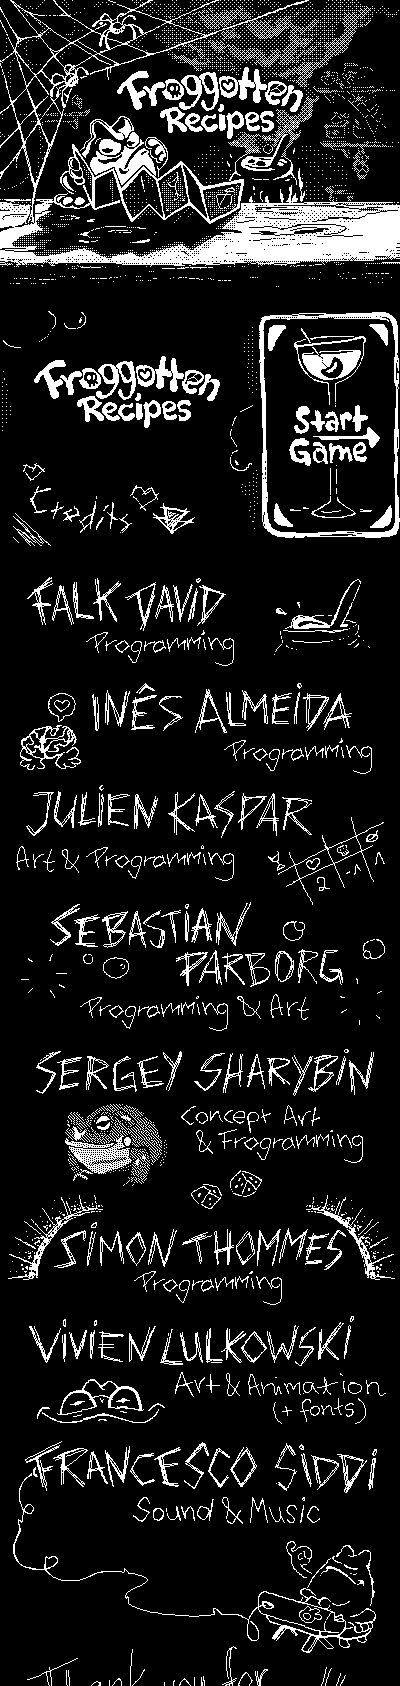 Froggotten
Recipes
Froggotten
Recipes
Start
Game
Credits
FALK DAVID
Programming
INÊS ALMEIDA
Programming
JULIEN KASPAR
Art & Programming
2 -1 1
SEBASTIAN
PARBORG
Programming & Art
SERGEY SHARYBIN
Concept Art
& Frogramming
SIMON THOMMES
Programming
VIVIEN LULKOWSKI
Art & Animation
(+ fonts)
FRANCESCO SIDDI
Sound & Music
Thank you for